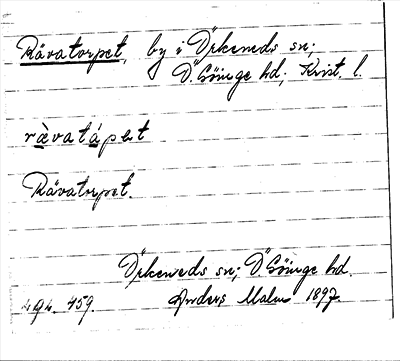 Rävatorpet, by i Örkeneds sn;
Ö Göinge hd; Krist. l.
rävatápet
Rävatorpet.
Örkeneds sn; Ö Göinge hd.
Anders Malm 1897.
459.